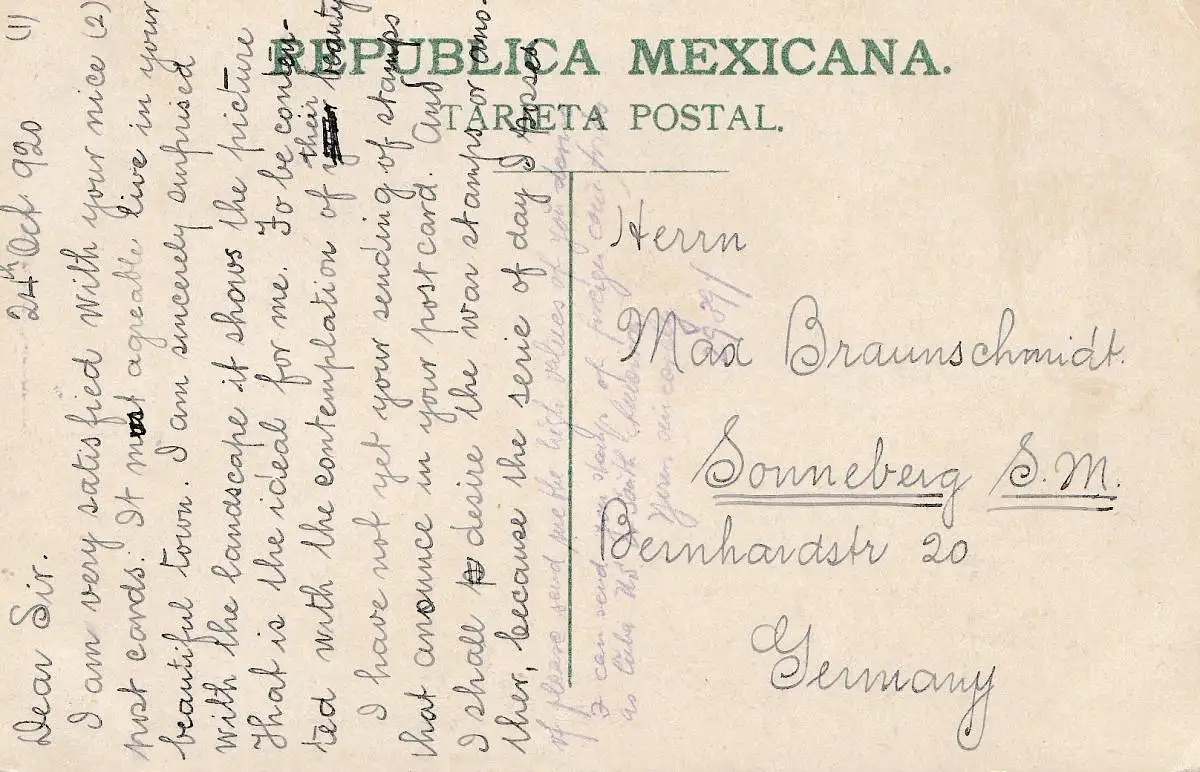 REPUBLICA MEXICANA.
TARJETA POSTAL.
(1)
24th Oct 920
Dear Sir.
I am very satisfied with your nice (2)
post cards. It must agreable live in your
beautiful town. I am sincerely surprised
with the landscape it shows the picture
That is the ideal for me. To be conten-
ted with the contemplation of their beauty
I have not yet your sending of stamps
that anounce in your postcard. And
I shall desire the war stamps or ano-
ther, because the serie of day I posses
please send me the high values if you
I can send you stamps of foreign countries
as Cuba US
Yours sincerely
Herrn
Max Braunschmidt.
Sonneberg S.M.
Bernhardstr 20
Germany